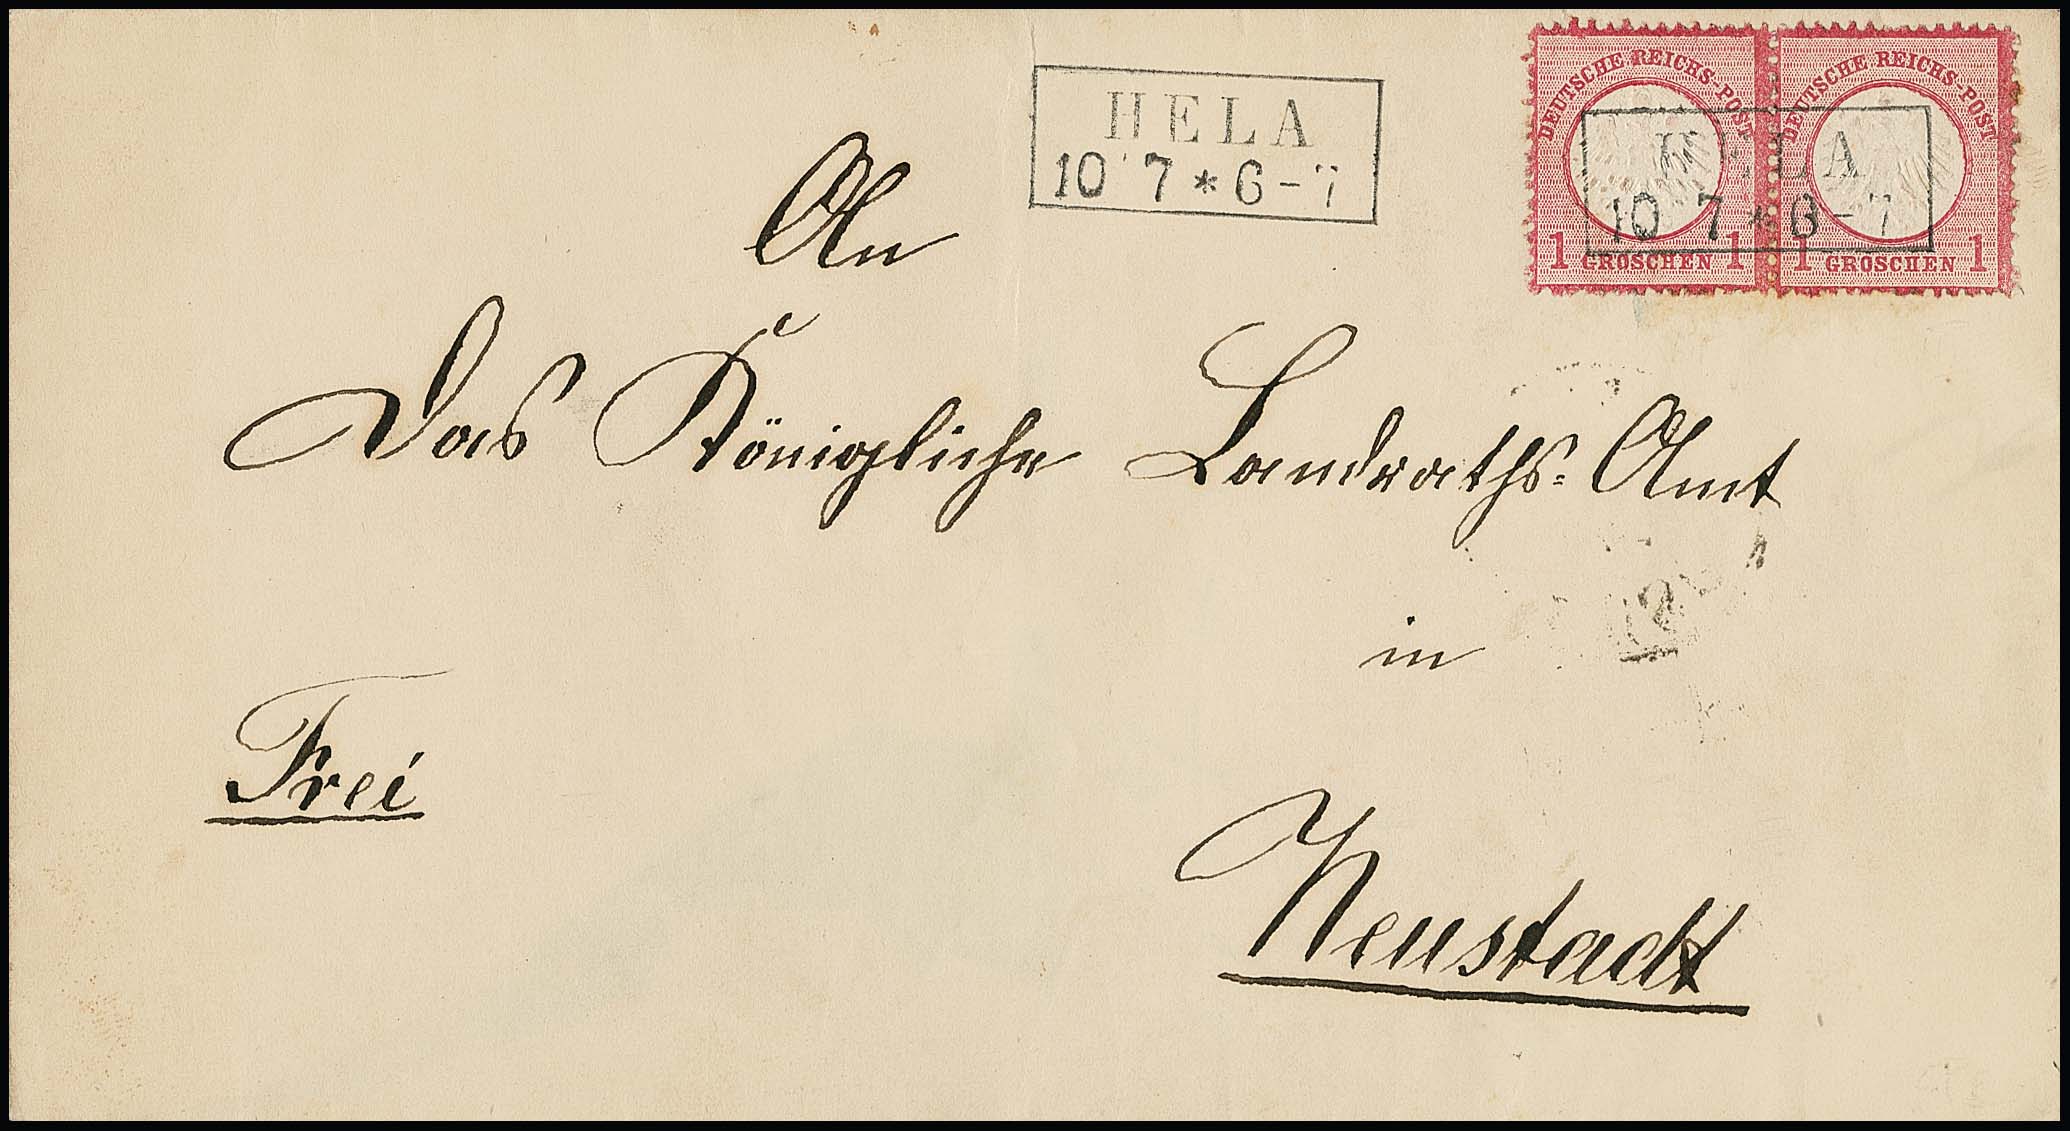 HELA
10 7 * 6-7
DEUTSCHE REICHS-POST
1 GROSCHEN 1
DEUTSCHE REICHS-POST
1 GROSCHEN 1
HELA
10 7 * 6-7
An
Das Königliche Landraths=Amt
in
Frei
Neustadt